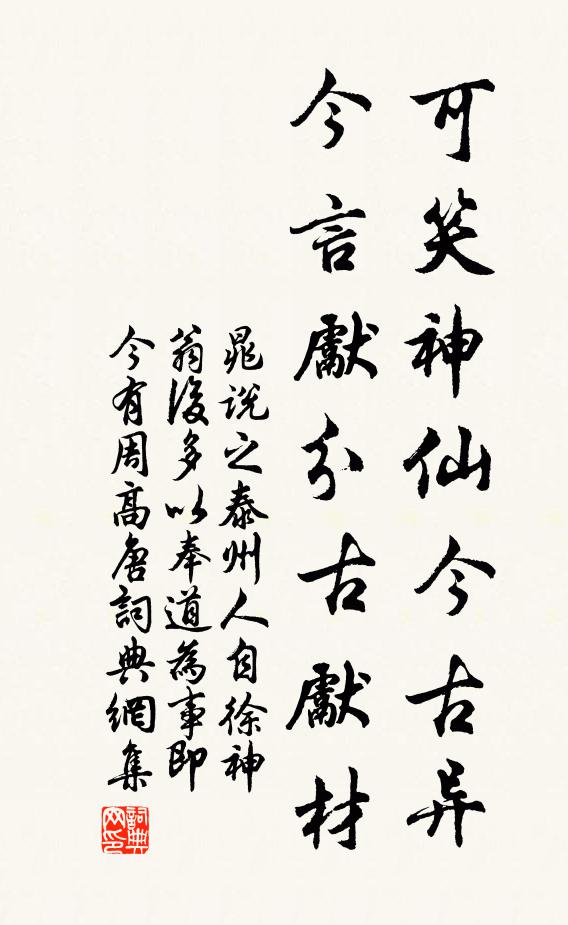 可笑神仙今古异
今言獻分古獻材
晁说之泰州人自徐神
翁後多以奉道為事即
今有周高唐詞典網集
詞典网印